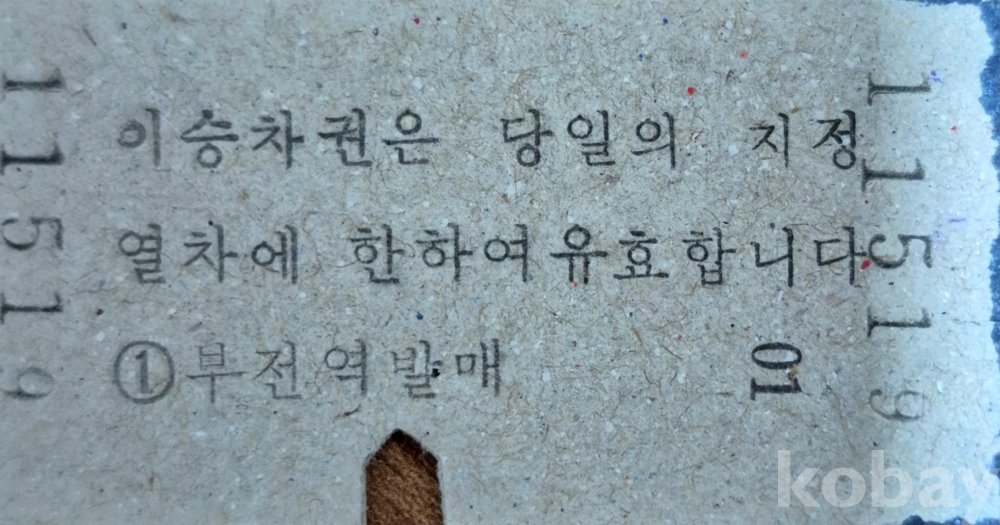 11519
이승차권은 당일의 지정
열차에 한하여유효합니다
①부전역발매 01
11519
kobay